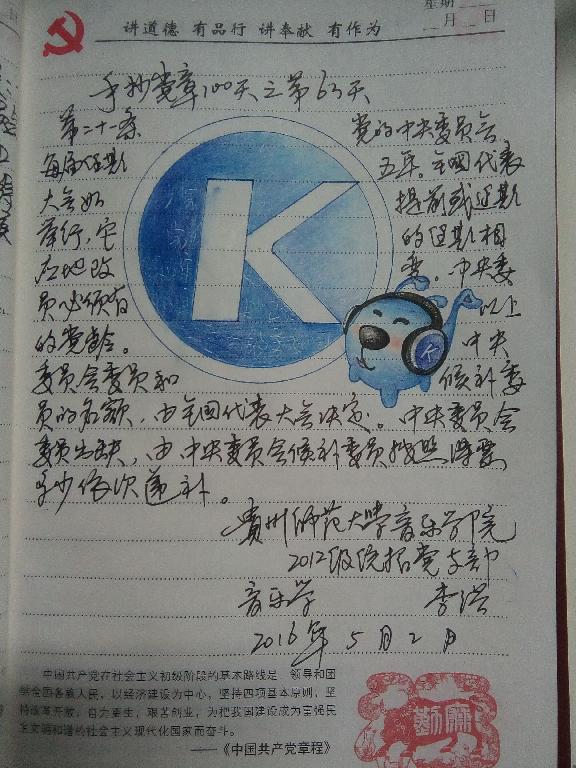 星期
讲道德 有品行 讲奉献 有作为
月 日
手抄党章100天之第63天
第二十一条 党的中央委员会
每届任期 五年。全国代表
大会如 提前或延期
举行,它 的任期相
应地改 变。中央委
员必须有 以上
的党龄。 中央
委员会委员和 候补委
员的名额,由全国代表大会决定。中央委员会
委员出缺,由中央委员会候补委员按照得票
多少依次递补。
K
K
贵州师范大学音乐学院
2012级统招党支部
音乐学 李
2016年5月2日
中国共产党在社会主义初级阶段的基本路线是 领导和团
结全国各族人民,以经济建设为中心,坚持四项基本原则,坚
持改革开放,自力更生,艰苦创业,为把我国建设成为富强民
主文明和谐的社会主义现代化国家而奋斗。
——《中国共产党章程》